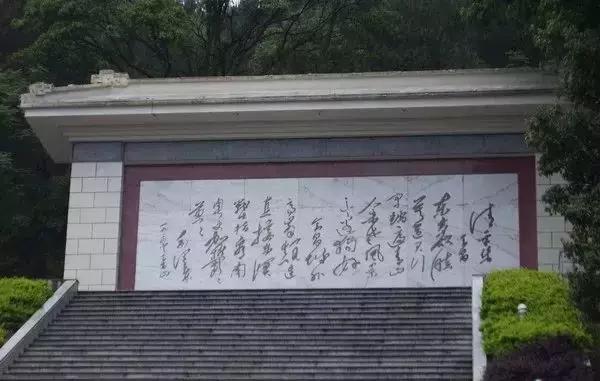 清平乐
会昌
东方欲晓
莫道君行
早踏遍青山
人未老风景
这边独好
会昌城外
高峰颠连
直接东溟
战士指看南
粤更加郁郁
葱葱
毛泽东